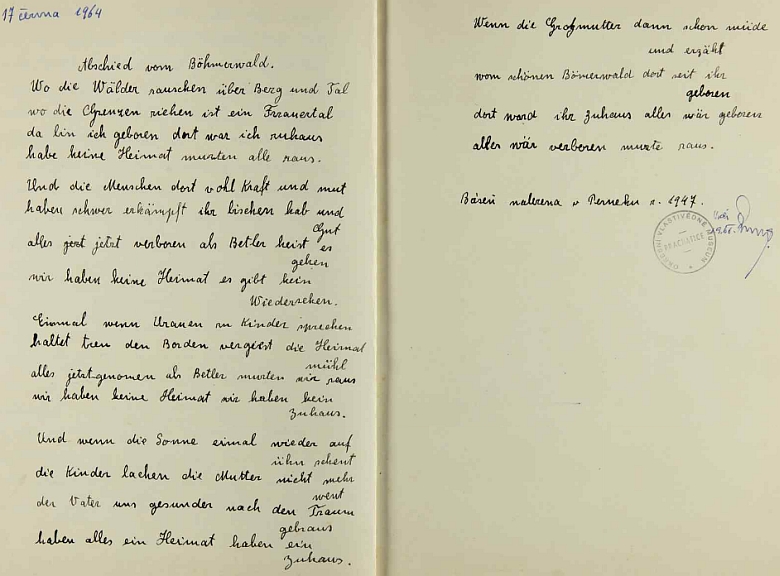 17 června 1964
Abschied vom Böhmerwald.
Wo die Wälder rauschen über Berg und Tal
wo die Grenzen ziehen ist ein Trauertal
da bin ich geboren dort war ich zuhaus
habe keine Heimat mussten alle raus.
Und die Menschen dort vohl Kraft und mut
haben schwer erkämpft ihr bischen hab und
Gut
alles jezt jetzt verboren als Betler heist es
gehen
wir haben keine Heimat es gibt kein
Wiedersehen.
Einmal wenn Uranen zu Kinder sprechen
haltet treu den Borden vergisst die Heimat
alles jetzt genomen als Betler mussten wir raus
wir haben keine Heimat wir haben kein
zuhaus.
Und wenn die Sonne einmal wieder auf
die Kinder lachen die Mutter nicht mehr
went
der Vater uns gesunder nach den Traum
gebraus
haben alles ein Heimat haben ein
zuhaus.
Wenn die Großmutter dann schon müde
und erzäht
vom schönen Bömerwald dort seit ihr
geboren
dort ward ihr zuhaus alles wär geboren
alles wär verboren musste raus.
Báseň nalezena v Perneku r. 1947.
OKRESNÍ VLASTIVĚDNÉ MUSEUM
PRACHATICE